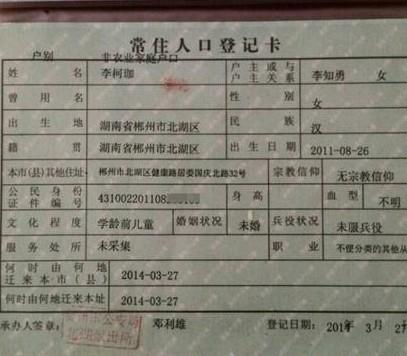 常住人口登记卡
户别 非农业家庭户口
姓名 李柯珈 户主或与户主关系 李知勇 女
曾用名 性别 女
出生地 湖南省郴州市北湖区 民族 汉
籍贯 湖南省郴州市北湖区 出生日期 2011-08-26
本市(县)其他住址 郴州市北湖区健康路居委国庆北路32号 宗教信仰 无宗教信仰
公民身份证件编号 431002201108 身高 血型 不明
文化程度 学龄前儿童 婚姻状况 未婚 兵役状况 未服兵役
服务处所 未采集 职业 不便分类的其他从
何时由何地迁来本市(县) 2014-03-27
何时由何地迁来本址 2014-03-27
承办人签章: 邓利雄 登记日期: 2014年3月27